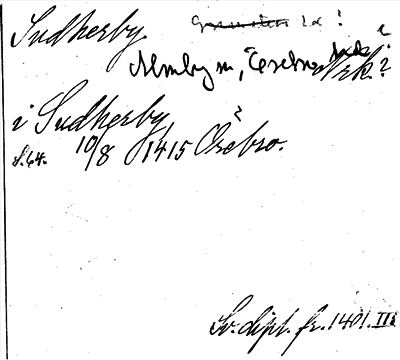 Sudherby. 2a! i
Almby sn, Örebro Nrk.?
i Sudherby, ?
S. 64. 10/8 1415 Örebro.
Sv. dipl. fr. 1401. III